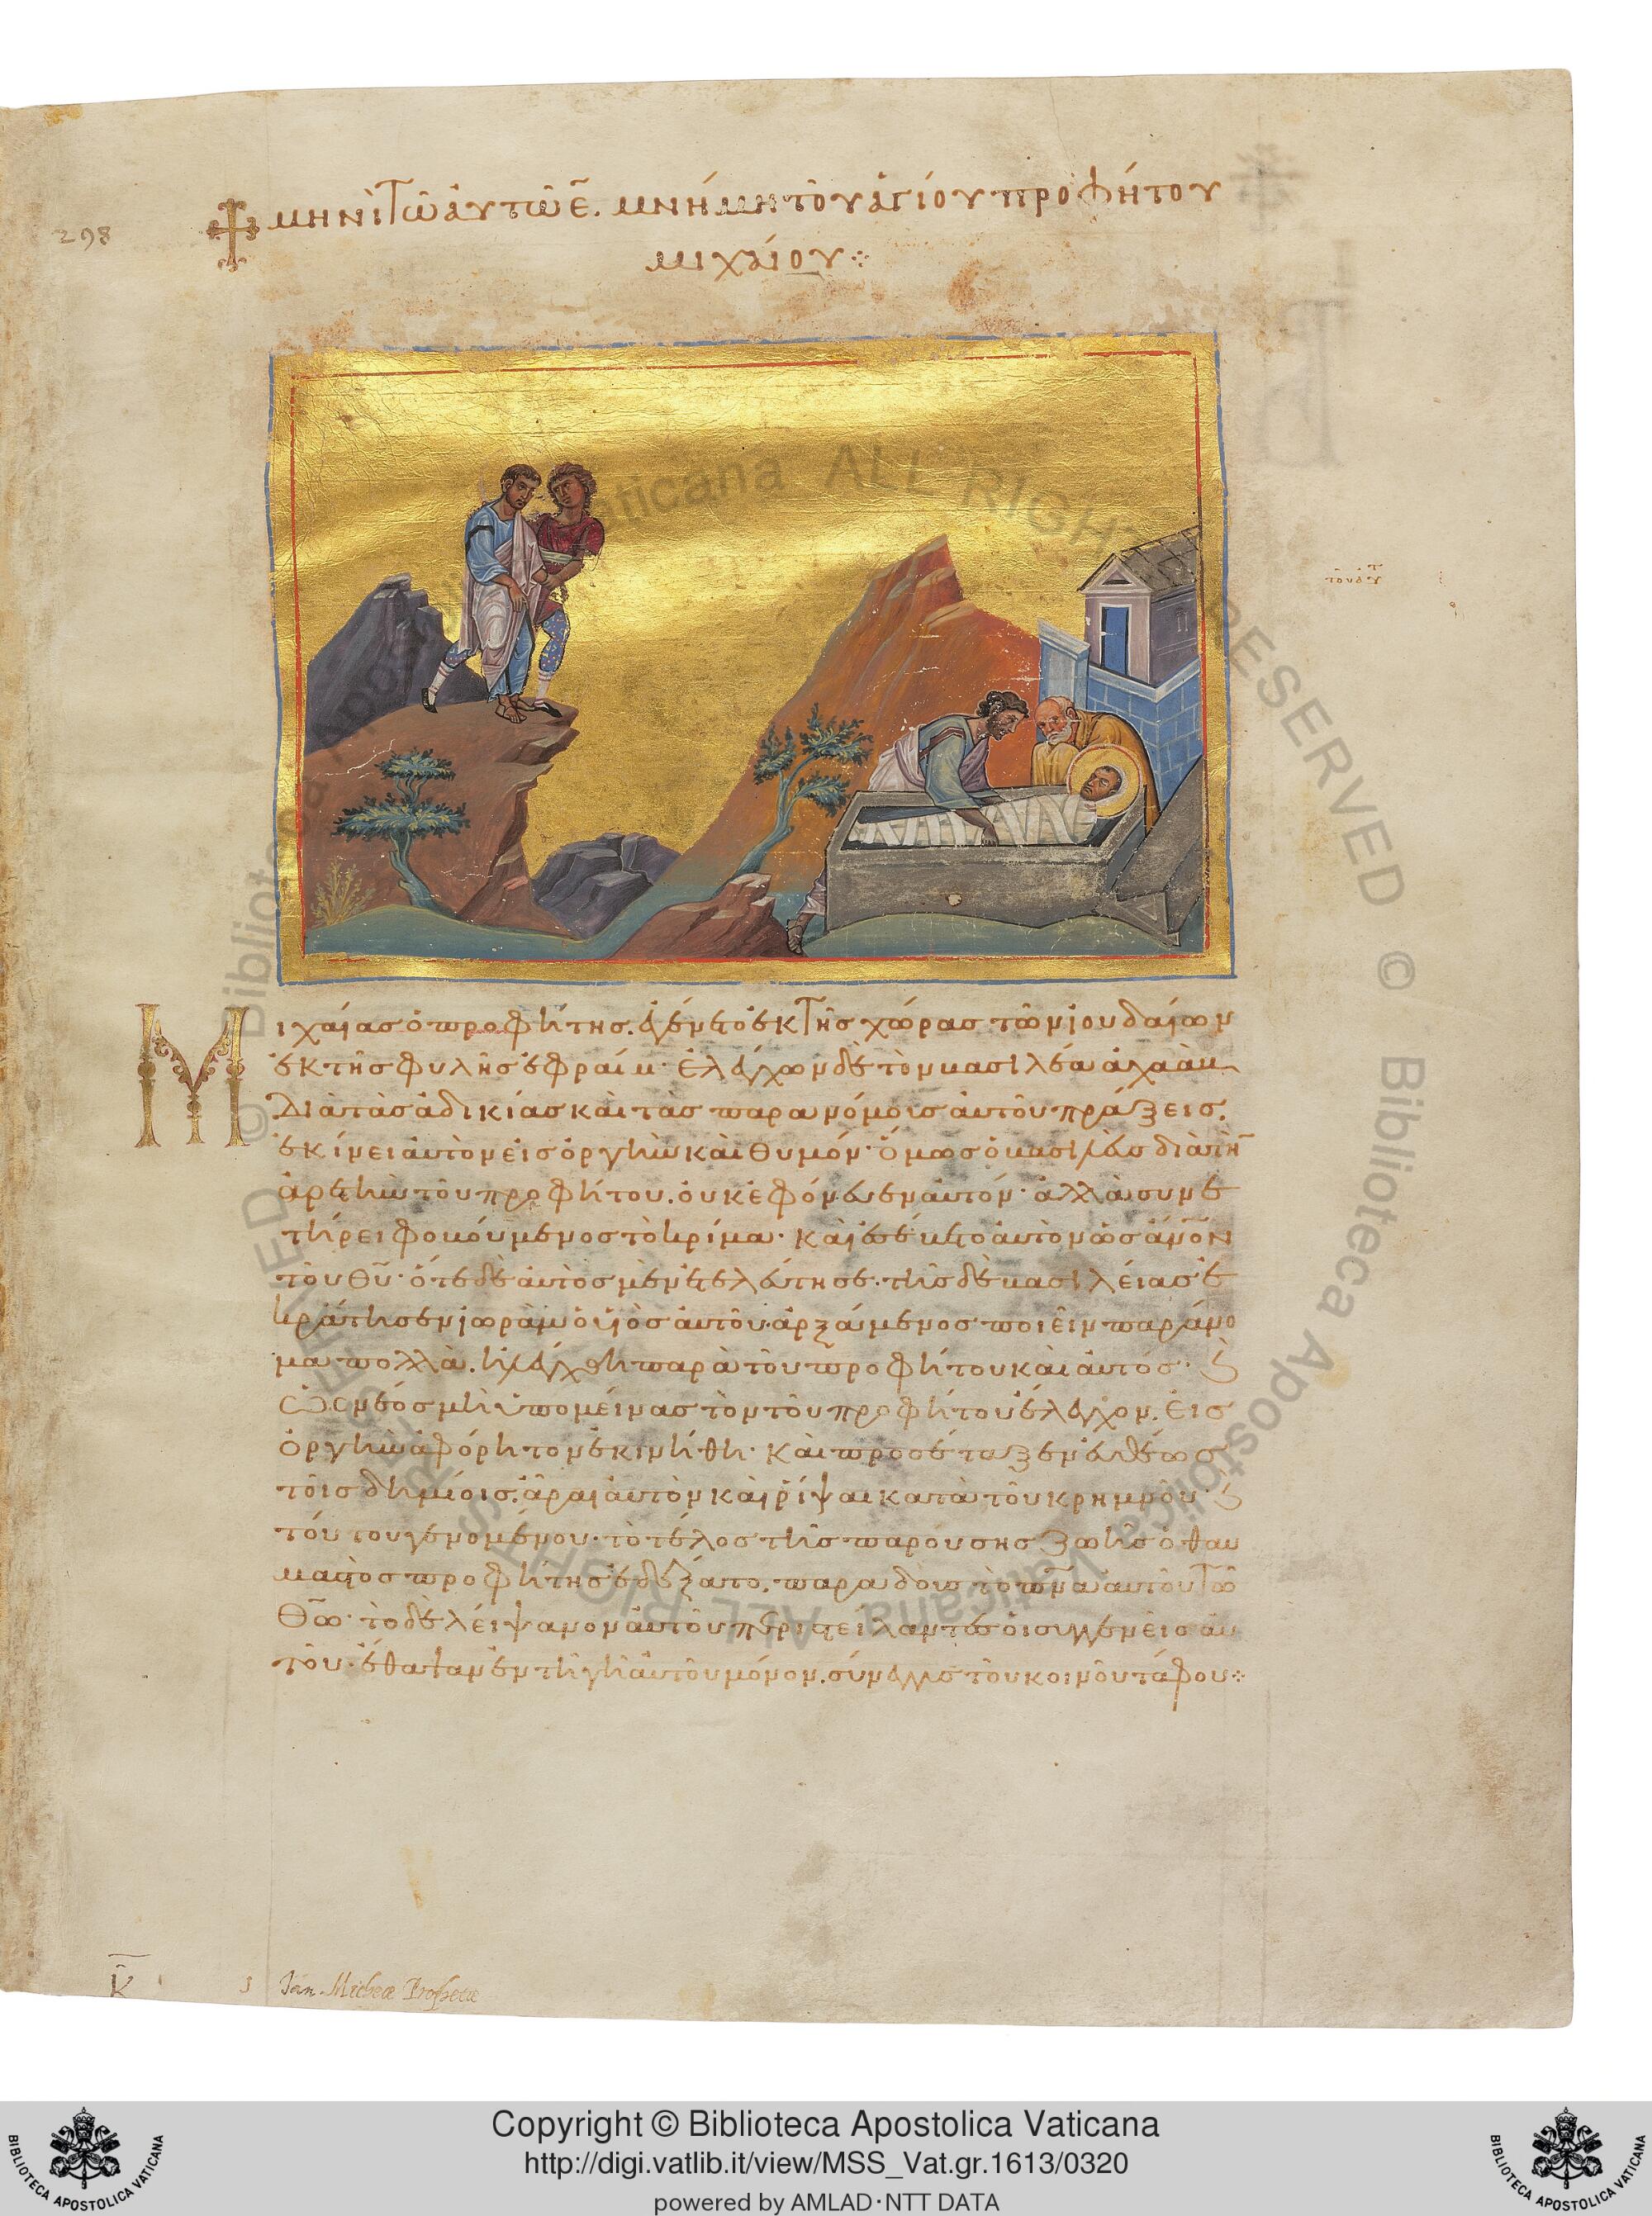 298
μηνὶ τῶ αὐτῶ ε̄. μνήμη τοῦ ἁγίου προφήτου
μιχαίου
Μιχαίας ὁ προφήτης. ἐγένετο ἐκ τῆς χώρας τῶν ἰουδαίων
ἐκ τῆς φυλῆς ἐφραίμ· ἐλέγχων δὲ τὸν βασιλέα ἀχαὰβ
διὰ τὰς ἀδικίας καὶ τὰς παρανόμοις αὐτοῦ πράξεις.
ἐκίνει αὐτὸν εἰς ὀργὴν καὶ θυμόν· ὅμως ὁ βασιλεὺς διὰ τὴν
ἀρετὴν τοῦ προφήτου. οὐκ ἐφόνευεν αὐτόν· ἀλλὰ συνε
τήρει φοβούμενος τὸ κρίμα· καὶ ἐσέβετο αὐτὸν ὡς ἄνον
τοῦ θυ̅· ὅτε δὲ αὐτὸς μὲν ἐτελεύτησε. τῆς δὲ βασιλείας ἐ
κράτησεν ἰωρὰμ ὁ υἱὸς αὐτοῦ. ἀρξάμενος ποιεῖν παράνο
μα πολλὰ. ἠλέγχθη παρὰ τοῦ προφήτου καὶ αὐτός· ϛ
ὁ ἐνεὸς μὴ ὑπομείνας τὸν τοῦ προφήτου ἔλεγχον. εἰς
ὀργὴν ἀφόρητον ἐκινήθη· καὶ προσέταξεν εὐθέως
τοῖς δημίοις. ἆραι αὐτὸν καὶ ῥίψαι κατὰ τοῦ κρημνοῦ· ϛ
τούτου γενομένου. τὸ τέλος τῆς παρούσης ζωῆς ὁ θαυ
μαστὸς προφήτης ἐδέξατο. παραδοὺς τὸ πνμα αὐτοῦ τῶ
θω̅· τὸ δὲ λείψανον αὐτοῦ περιστείλαντες οἱ συγγενεῖς αὐ
τοῦ. ἔθαψαν ἐν τῆ γῆ αὐτοῦ μόνον. σύνεγγυς τοῦ κοινοῦ τάφου
κ̅
5 Ian. Micheæ Prophetæ
© Biblioteca Apostolica Vaticana ALL RIGHTS RESERVED © Biblioteca Apostolica Vaticana ALL RIGHTS RESERVED
Copyright © Biblioteca Apostolica Vaticana
http://digi.vatlib.it/view/MSS_Vat.gr.1613/0320
powered by AMLAD·NTT DATA
BIBLIOTECA APOSTOLICA VATICANA
BIBLIOTECA APOSTOLICA VATICANA